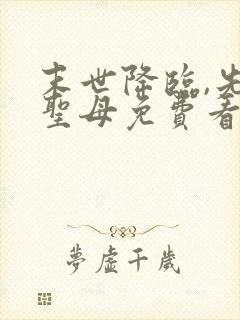 末世降臨,先
聖母免費看
夢虛千歲